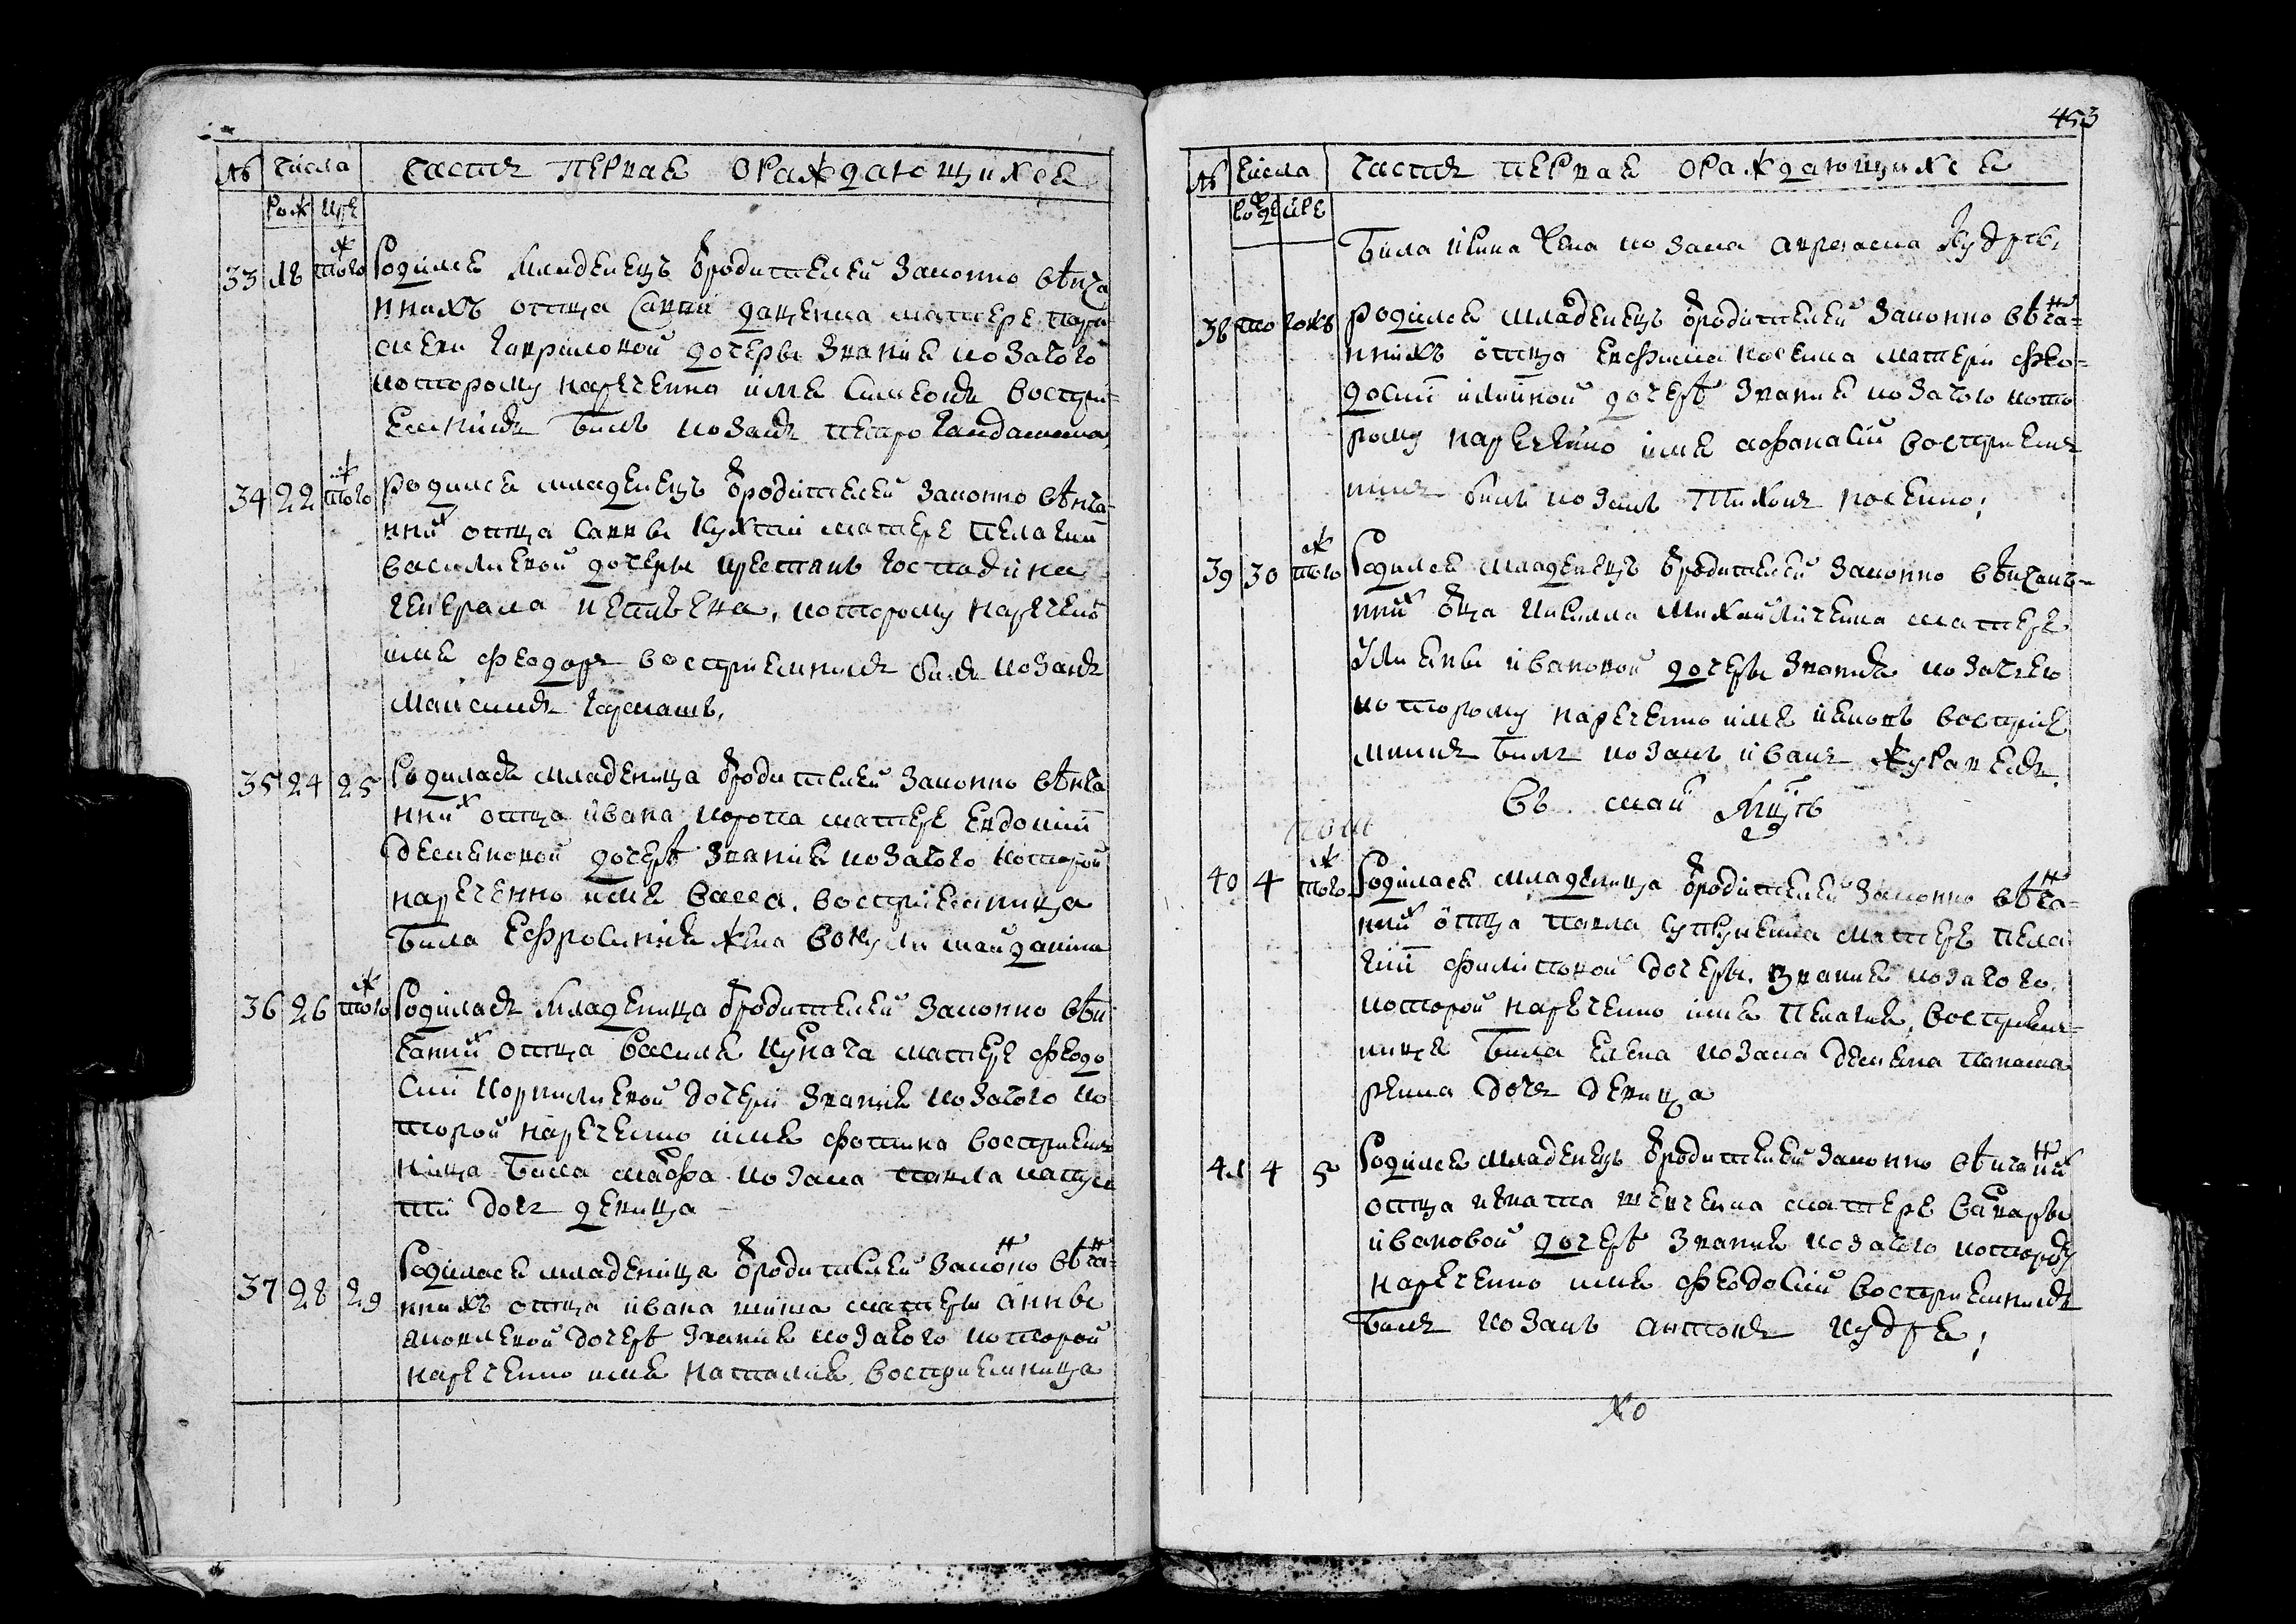 № Числа Часть первая о раждающихся
рож кре
33 18 тогож Родился младенецъ ѿ родителей законно вѣнча
нныхъ отца Саввы даценка матере пара
скеви гавриловой дочеры звания козачого
которому наречено имя Симеонъ восприı-
емникъ былъ козакъ петро
34 22 тогож родился младенецъ ѿ родителей законно вѣнча-
нных отца Саввы Кухти матере пелагии
василиевой дочеры крестянъ господина
генерала которому наречено
имя феодоръ восприемникъ билъ козакъ
максимъ
35 24 25 Родилась младеница ѿ родителей законно вѣнча
нных отца ивана коропа матере евдокии
демяновой дочерѣ звания козачого которой
наречено имя васса. восприемница
была Ефросиния жена вокули
36 26 тогож Родилась младеница ѿ родителей законно вѣн
чаных отца василя матере феодо
сии корнилиевой дочери звания козачого ко
торой наречено имя фотина восприем
ница была марфа козака павла
дочь девица
37 28 29 Родилася младеница ѿ родителей законно вѣнча-
нныхъ отца ивана матери анны
яковлевой дочерѣ звания козачого которой
наречено имя наталия. восприемница
453
№ Числа Часть первая о раждающихся
рожде кре
была ирина жена козака Кудрѣ,
38 тогожъ родился младенецъ ѿ родителей законно вѣнча-
нныхъ отца евфима носенка матери фео-
досии дочерѣ звания козачого кото
рому наречено имя афанасий восприем
никъ былъ козакъ тихонъ носенко;
39 30 тогож Родился младенецъ ѿ родителей законно вѣнчан-
ных ѿца кирилла матере
Улияны ивановой дочеры звания козачего
которому наречено имя иаковъ восприе
мникъ былъ козакъ иванъ журавель.
въ май мцѣ
40 4 тогож Родилася младеница ѿ родителей законно вѣнча-
ных отца павла матере пела
гии филиповой дочеры. звания козачого.
которой наречено имя пелагия. восприем-
ница была елена козака демяна
дочь девица
41 4 5 Родился младенецъ ѿ родителей законно вѣнчанных
отца игната шевченка матере варвары
ивановой дочерѣ звания козачого которому
наречено имя феодосий восприемникъ
былъ козакъ антонъ кудря;